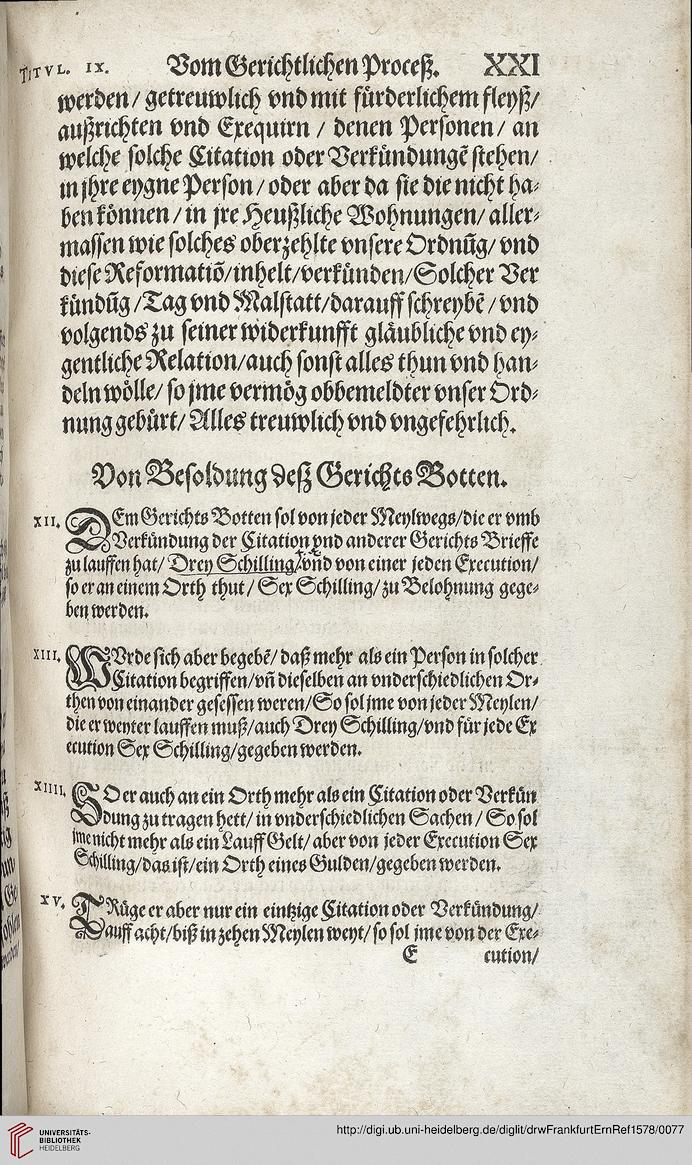 TITVL. IX. Vom Gerichtlichen Proceß. XXI
werden / getreuwlich vnd mit fürderlichem fleyß/
außrichten vnd Exequirn / denen Personen / an
welche solche Citation oder Verkündungẽ stehen/
in jhre eygne Person / oder aber da sie die nicht ha⸗
ben können / in jre Heußliche Wohnungen / aller⸗
massen wie solches oberzehlte vnsere Ordnũg / vnd
diese Reformatiõ/inhelt/verkünden/Solcher Ver
kündũg /Tag vnd Malstatt/darauff schreybẽ / vnd
volgends zu seiner widerkunfft gläubliche vnd ey⸗
gentliche Relation/auch sonst alles thun vnd han⸗
deln wölle/ so jme vermög obbemeldter vnser Ord⸗
nung gebürt/ Alles treuwlich vnd vngefehrlich.
Von Besoldung deß Gerichts Botten.
XII. DEm Gerichts Botten sol von jeder Meylwegs/die er vmb
Verkündung der Citation vnd anderer Gerichts Brieffe
zu lauffen hat/ Drey Schilling/vñd von einer jeden Execution/
so er an einem Orth thut / Sex Schilling/ zu Belohnung gege⸗
ben werden.
XIII. WVrde sich aber begebẽ/ daß mehr als ein Person in solcher
Citation begriffen/vñ dieselben an vnderschiedlichen Or⸗
then von einander gesessen weren/So sol jme von jeder Meylen/
die er weyter lauffen muß/auch Drey Schilling/vnd für jede Ex
ecution Sex Schilling/gegeben werden.
XIIII. SO er auch an ein Orth mehr als ein Citation oder Verkün
dung zu tragen hett/ in vnderschiedlichen Sachen / So sol
jme nicht mehr als ein Lauff Gelt/ aber von jeder Execution Sex
Schilling/das ist/ein Orth eines Gulden/gegeben werden.
XV. TRüge er aber nur ein eintzige Citation oder Verkündung/
auff acht/biß in zehen Meylen weyt/ so sol jme von der Exe⸗
E cution/
UNIVERSITÄTS-
BIBLIOTHEK
HEIDELBERG
http://digi.ub.uni-heidelberg.de/diglit/drwFrankfurtErnRef1578/0077